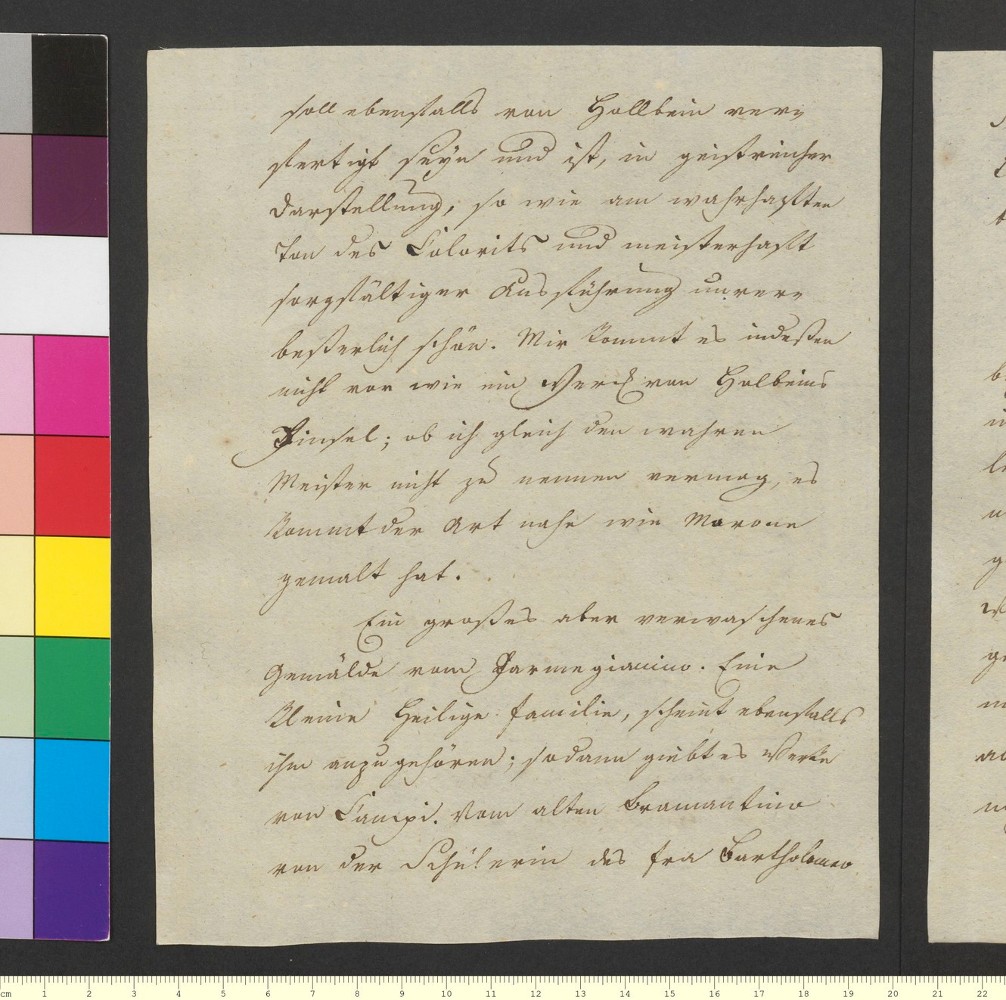 soll ebenfalls von Hollbein ver¬
fertigt seyn und ist, in geistreicher
Darstellung, so wie am wahrhaften
Ton des Colorits und meisterhaft
sorgfältiger Ausführung unver¬
besserlich schön. Mir kommt es indessen
nicht vor wie ein Werck von Holbeins
Pinsel; ob ich gleich den wahren
Meister nicht zu nennen vermag, es
kommt der Art nahe wie Morone
gemalt hat.
Ein großes aber verwaschenes
Gemälde vom Parmegianino. Eine
kleine Heilige Familie, scheint ebenfalls
ihm anzugehören; sodann giebt es Werke
von Campi. Vom alten Bramantino
von der Schülerin des fra Bartholomeo
cm 1 2 3 4 5 6 7 8 9 10 11 12 13 14 15 16 17 18 19 20 21 22